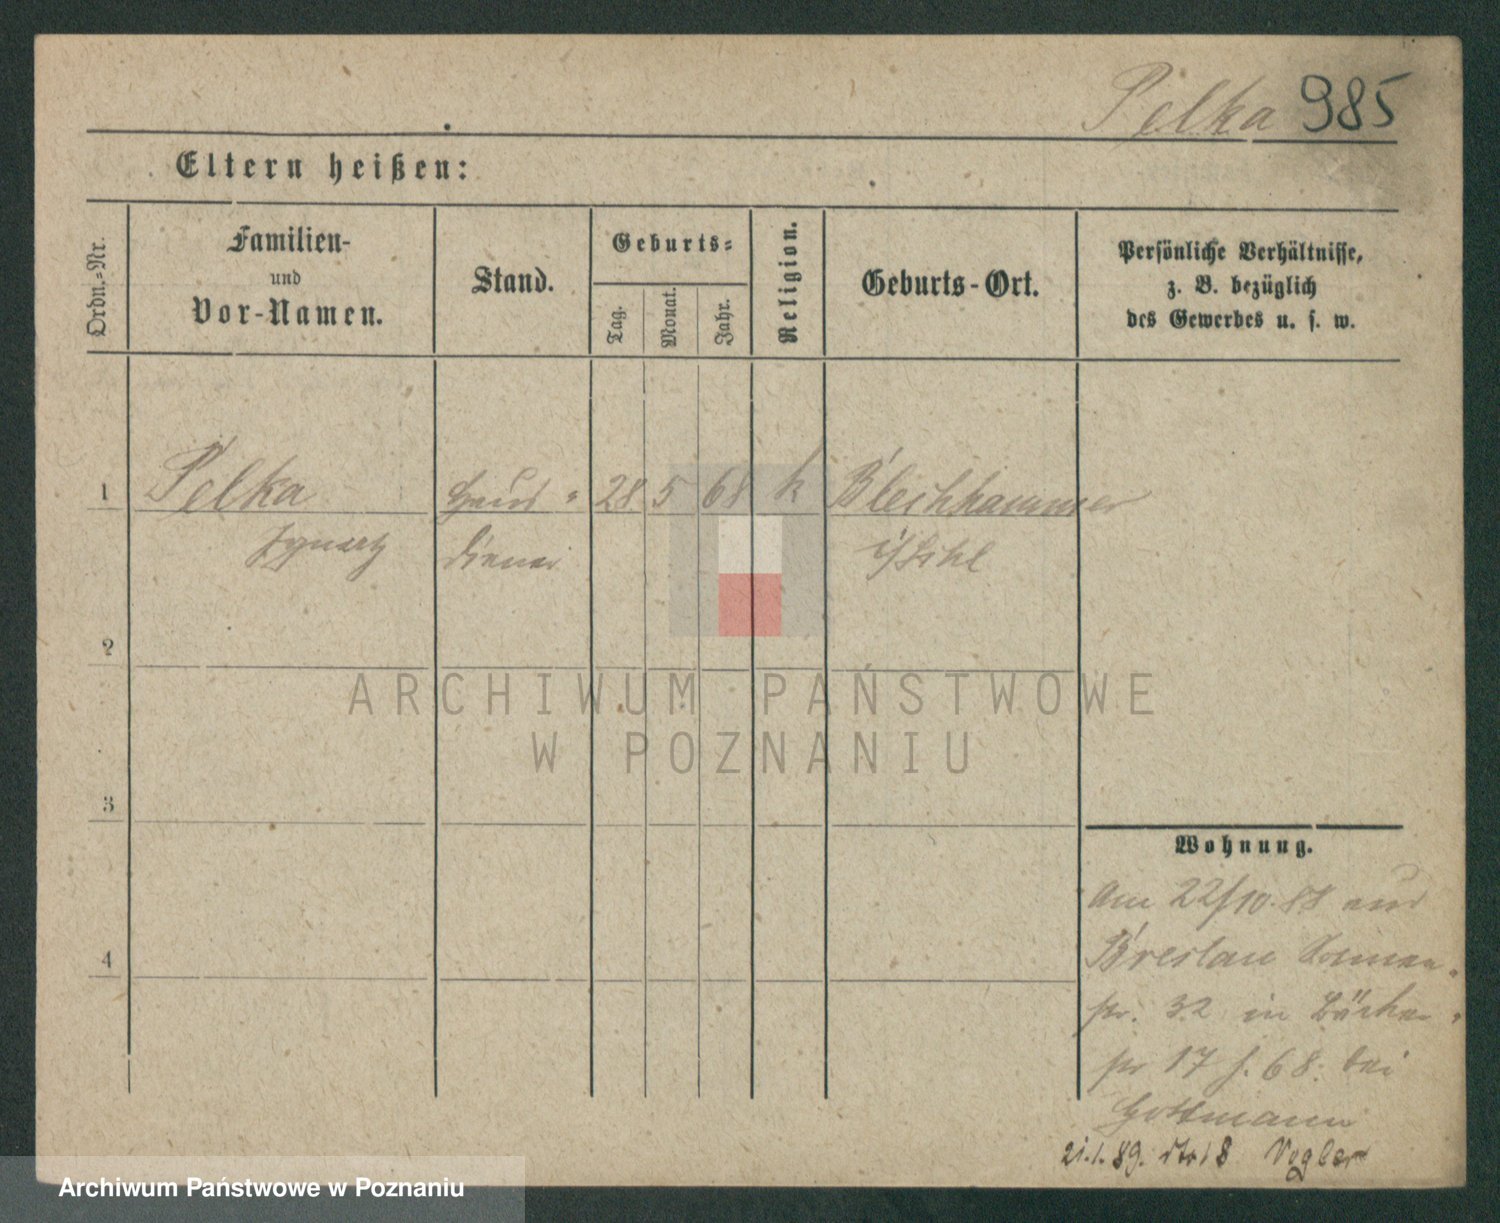 Pelka 985
Eltern heißen:
Ordn.-Nr.
Familien-
und
Vor-Namen.
Stand.
Geburts-
Tag.
Monat.
Jahr.
Religion.
Geburts-Ort.
Persönliche Verhältnisse,
z. B. bezüglich
des Gewerbes u. s. w.
1 Pelka Haus- 28 5 68 k Blechhammer
Ignatz diener
2
3
4
Wohnung.
Am 22/10. 88 aus
Breslau
str. 32 in Bäcker-
str 17 b. 68: bei
Gottmann
21.1.89. dto 18 Vogler
ARCHIWUM PAŃSTWOWE
W POZNANIU
Archiwum Państwowe w Poznaniu